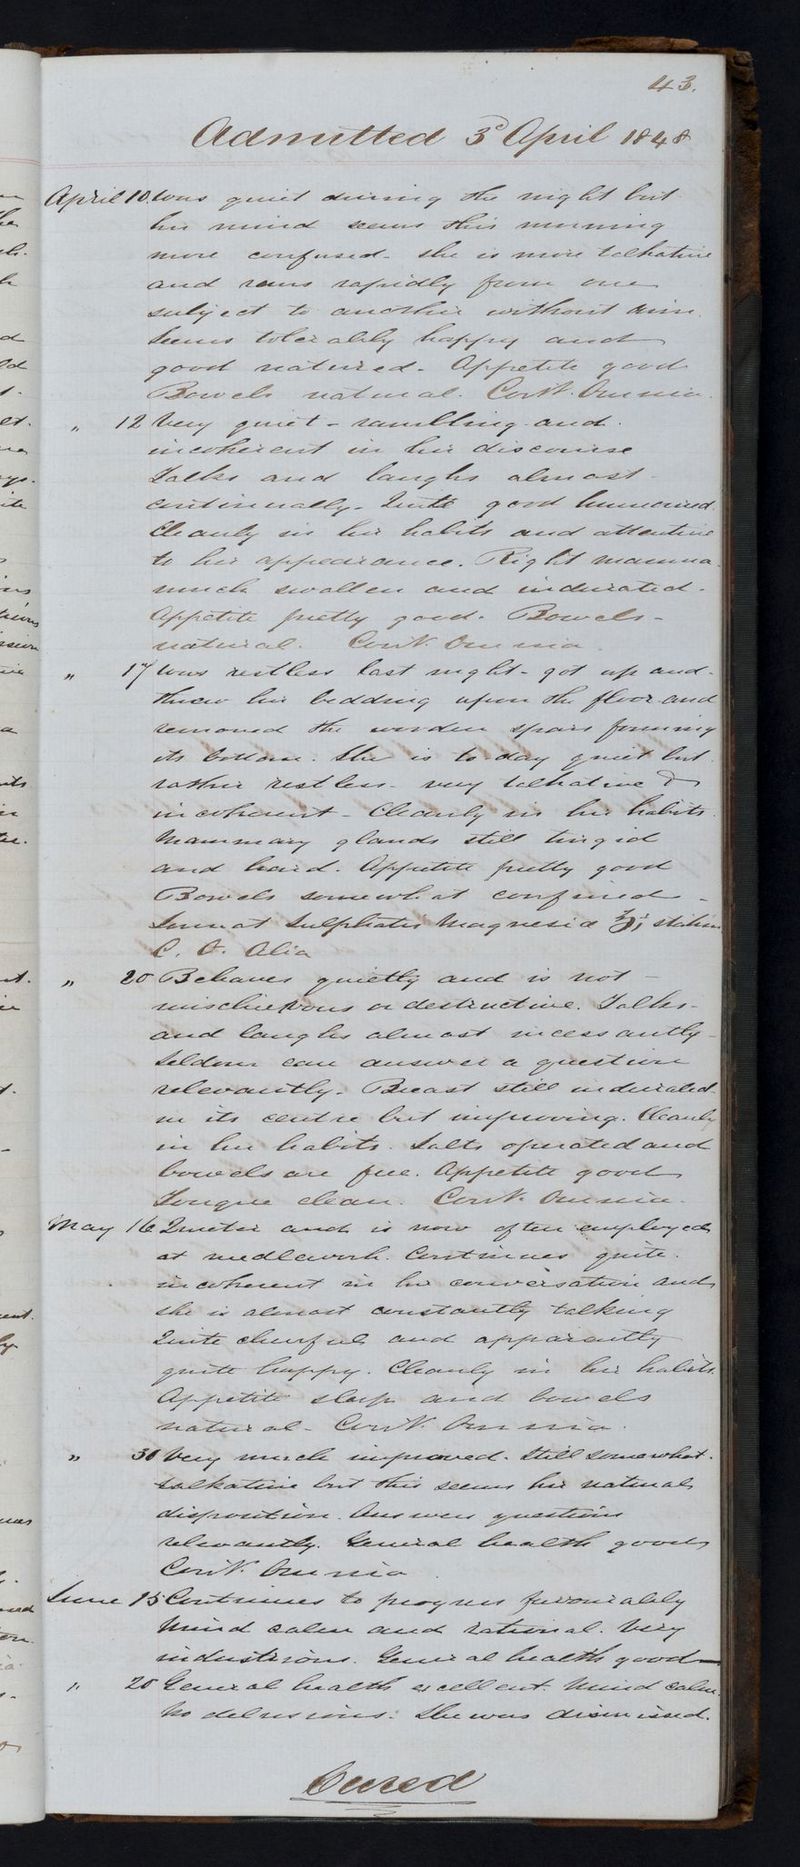 43.
Admitted 3d April 1848
April 10. Was quiet during the night but
her mind seems this morning
more confused - she is more talkative
and runs rapidly from one
subject to another without aim.
Seems tolerably happy and
good natured - Appetite good
Bowels natural. Cont. Omnia.
" 12 Very quiet - rambling and
incoherent in her discourse
Talks and laughs almost
continually - Quite good humoured.
Cleanly in her habits and attentive
to her appearance. Right mamma
much swollen and indurated.
Appetite pretty good. Bowels -
natural. Cont. Omnia.
" 17 Was restless last night - got up and
threw her bedding upon the floor and
removed the wooden spars forming
its bottom. She is to day quiet but
rather restless - very talkative &
incoherent - Cleanly in her habits.
Mammary glands still turgid
and hard. Appetite pretty good
Bowels somewhat confined -
Sumat Sulphatis Magnesia ℥j statim
C. O. Alia
" 20 Behaves quietly and is not -
mischievous or destructive. Talks -
and laughs almost incessantly -
Seldom can answer a question
relevantly. Breast still indurated
in its centre but improving. Cleanly
in her habits. Salts operated and
bowels are free. Appetite good
Tongue clean. Cont. Omnia.
May 16 Quieter and is now often employed
at needlework. Continues quite
incoherent in her conversation and
she is almost constantly talking
Quite cheerful and apparently
quite happy. Cleanly in her habits
Appetite sleep and bowels
natural - Cont. Omnia.
" 30 Very much improved. Still somewhat
talkative but this seems her natural
disposition. Answers questions
relevantly. General health good
Cont. Omnia.
June 15 Continues to progress favourably
Mind calm and rational. Very
industrious. General health good
" 20 General health excellent. Mind calm.
No delusions. She was dismissed.
Cured